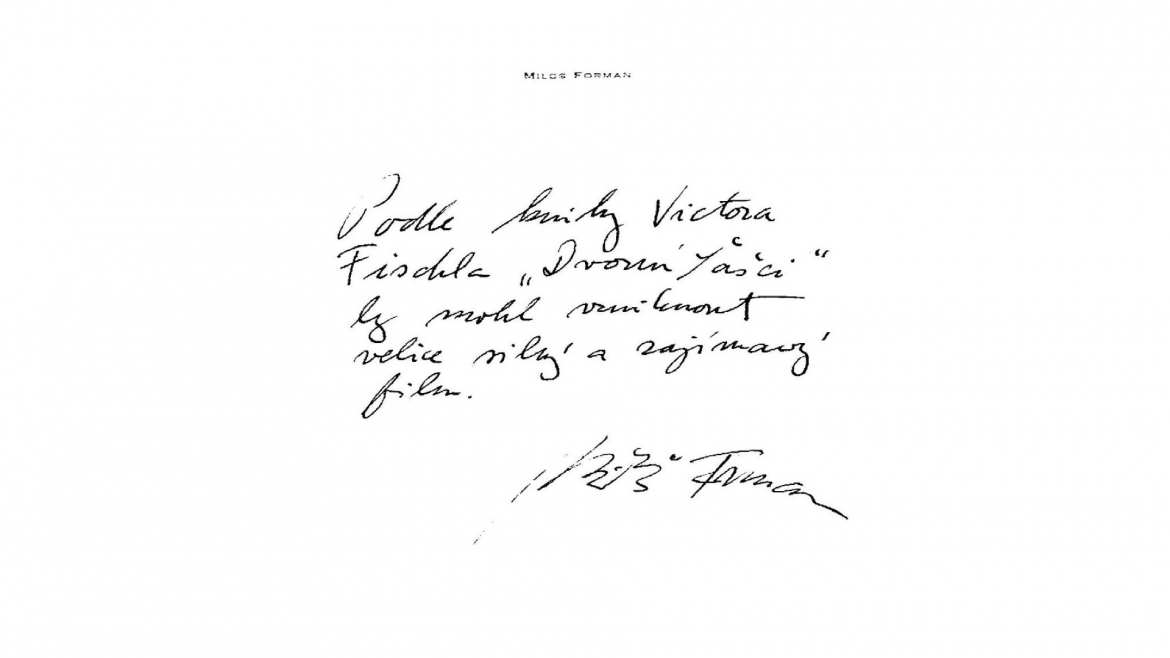 MILOS FORMAN
Podle knihy Victora
Fischla „Dvorní šášci“
by mohl vzniknout
velice silný a zajímavý
film.
Miloš Forman